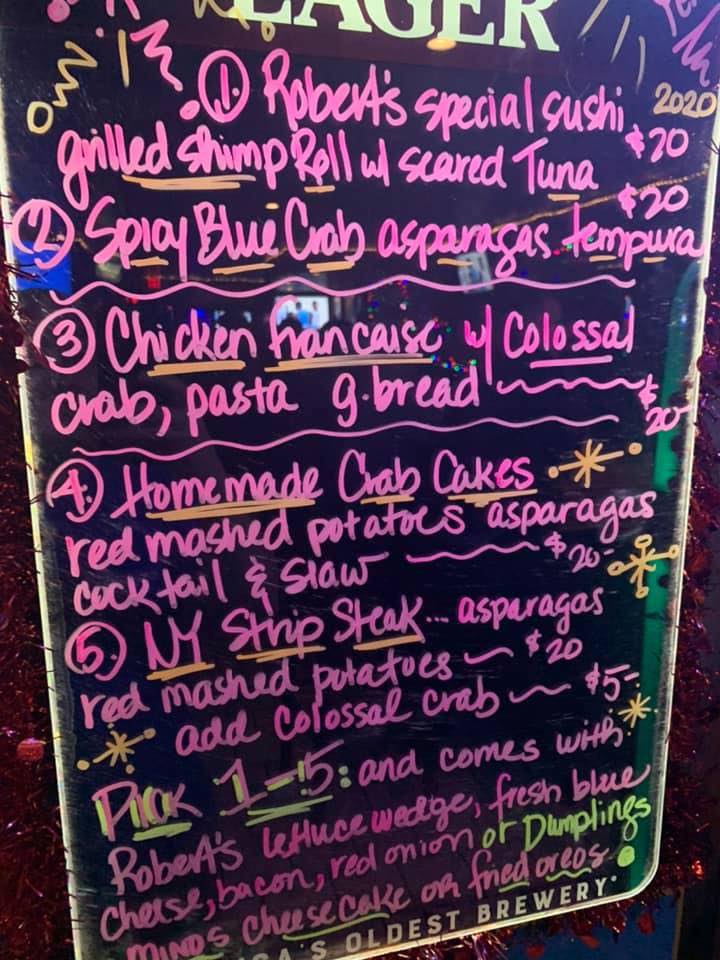 LAGER
2020
① Robert's special sushi
grilled shimp Roll w/ seared Tuna $20
② Spicy Blue Crab asparagas tempura $20
③ Chicken francaise w/ Colossal
crab, pasta g.bread $20-
④ Homemade Crab Cakes
red mashed potatoes asparagas
cocktail & Slaw $20-
⑤ NY Strip Steak... asparagas
red mashed potatoes $20
add colossal crab $5-
PICK 1-5: and comes with:
Robert's lettuce wedge, fresh blue
cheese, bacon, red onion or Dumplings
MINDS cheesecake or fried oreos
CA'S OLDEST BREWERY